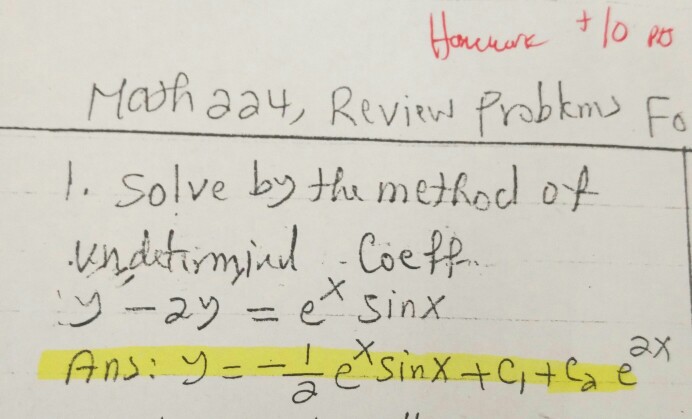 Homework +10 pts
Math 224, Review Problems Fo
1. Solve by the method of
undetermined Coeff.
y - 2y = e^x sinx
Ans: y = -1/2 e^x sinx + C₁ + C₂ e^2x